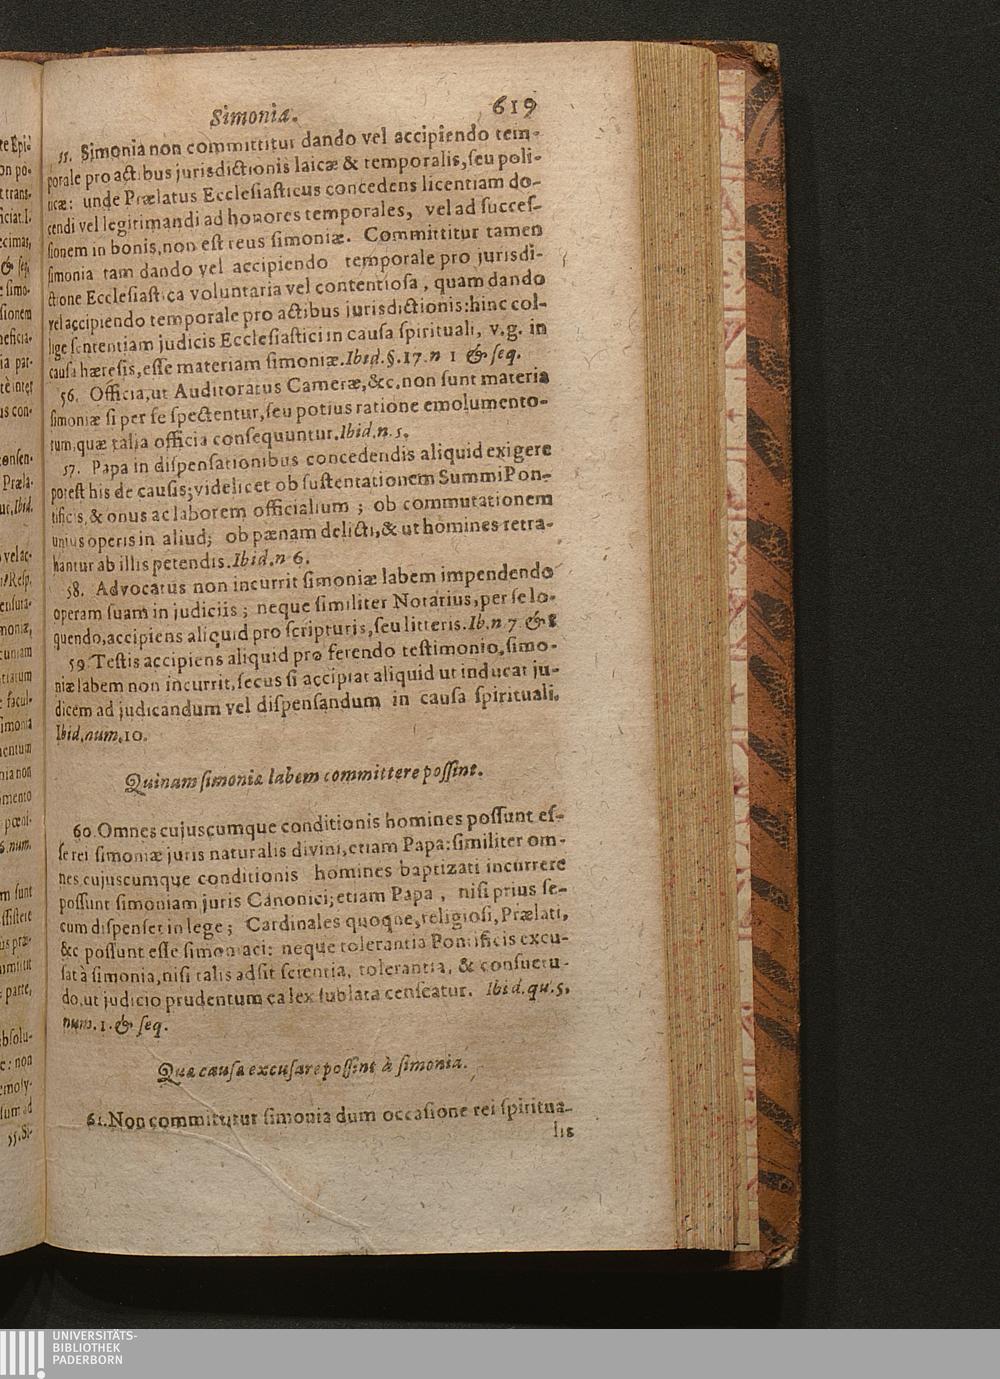 Simonia. 619
55. Simonia non committitur dando vel accipiendo tem-
porale pro actibus jurisdictionis laicæ & temporalis, seu poli-
ticæ: unde Prælatus Ecclesiasticus concedens licentiam do-
cendi vel legitimandi ad honores temporales, vel ad succes-
sionem in bonis, non est reus simoniæ. Committitur tamen
simonia tam dando vel accipiendo temporale pro jurisdi-
ctione Ecclesiastica voluntaria vel contentiosa, quam dando
vel accipiendo temporale pro actibus jurisdictionis: hinc col-
lige sententiam judicis Ecclesiastici in causa spirituali, v.g. in
causa hæresis, esse materiam simoniæ. Ibid. §. 17. n 1 & seq.
56. Officia, ut Auditoratus Cameræ, &c. non sunt materia
simoniæ si per se spectentur, seu potius ratione emolumento-
rum, quæ talia officia consequuntur. Ibid. n. 5.
57. Papa in dispensationibus concedendis aliquid exigere
potest his de causis; videlicet ob sustentationem Summi Pon-
tificis, & onus ac laborem officialium; ob commutationem
unius operis in aliud; ob pænam delicti, & ut homines retra-
hantur ab illis petendis. Ibid. n 6.
58. Advocatus non incurrit simoniæ labem impendendo
operam suam in judiciis; neque similiter Notarius, per se lo-
quendo, accipiens aliquid pro scripturis, seu litteris. Ib. n 7 & 8
59 Testis accipiens aliquid pro ferendo testimonio, simo-
niæ labem non incurrit, secus si accipiat aliquid ut inducat ju-
dicem ad judicandum vel dispensandum in causa spirituali.
Ibid. num. 10.
Quinam simoniæ labem committere possint.
60 Omnes cujuscumque conditionis homines possunt es-
se rei simoniæ juris naturalis divini, etiam Papa: similiter om-
nes cujuscumque conditionis homines baptizati incurrere
possunt simoniam juris Canonici; etiam Papa, nisi prius se-
cum dispenset in lege; Cardinales quoque, religiosi, Prælati,
&c possunt esse simoniaci: neque tolerantia Pontificis excu-
sat à simonia, nisi talis adsit scientia, tolerantia, & consuetu-
do, ut judicio prudentum ea lex sublata censeatur. Ibid. qu. 5.
num. 1. & seq.
Quæ causa excusare possint à simonia.
61. Non committitur simonia dum occasione rei spiritua-
lis
UNIVERSITÄTS-
BIBLIOTHEK
PADERBORN